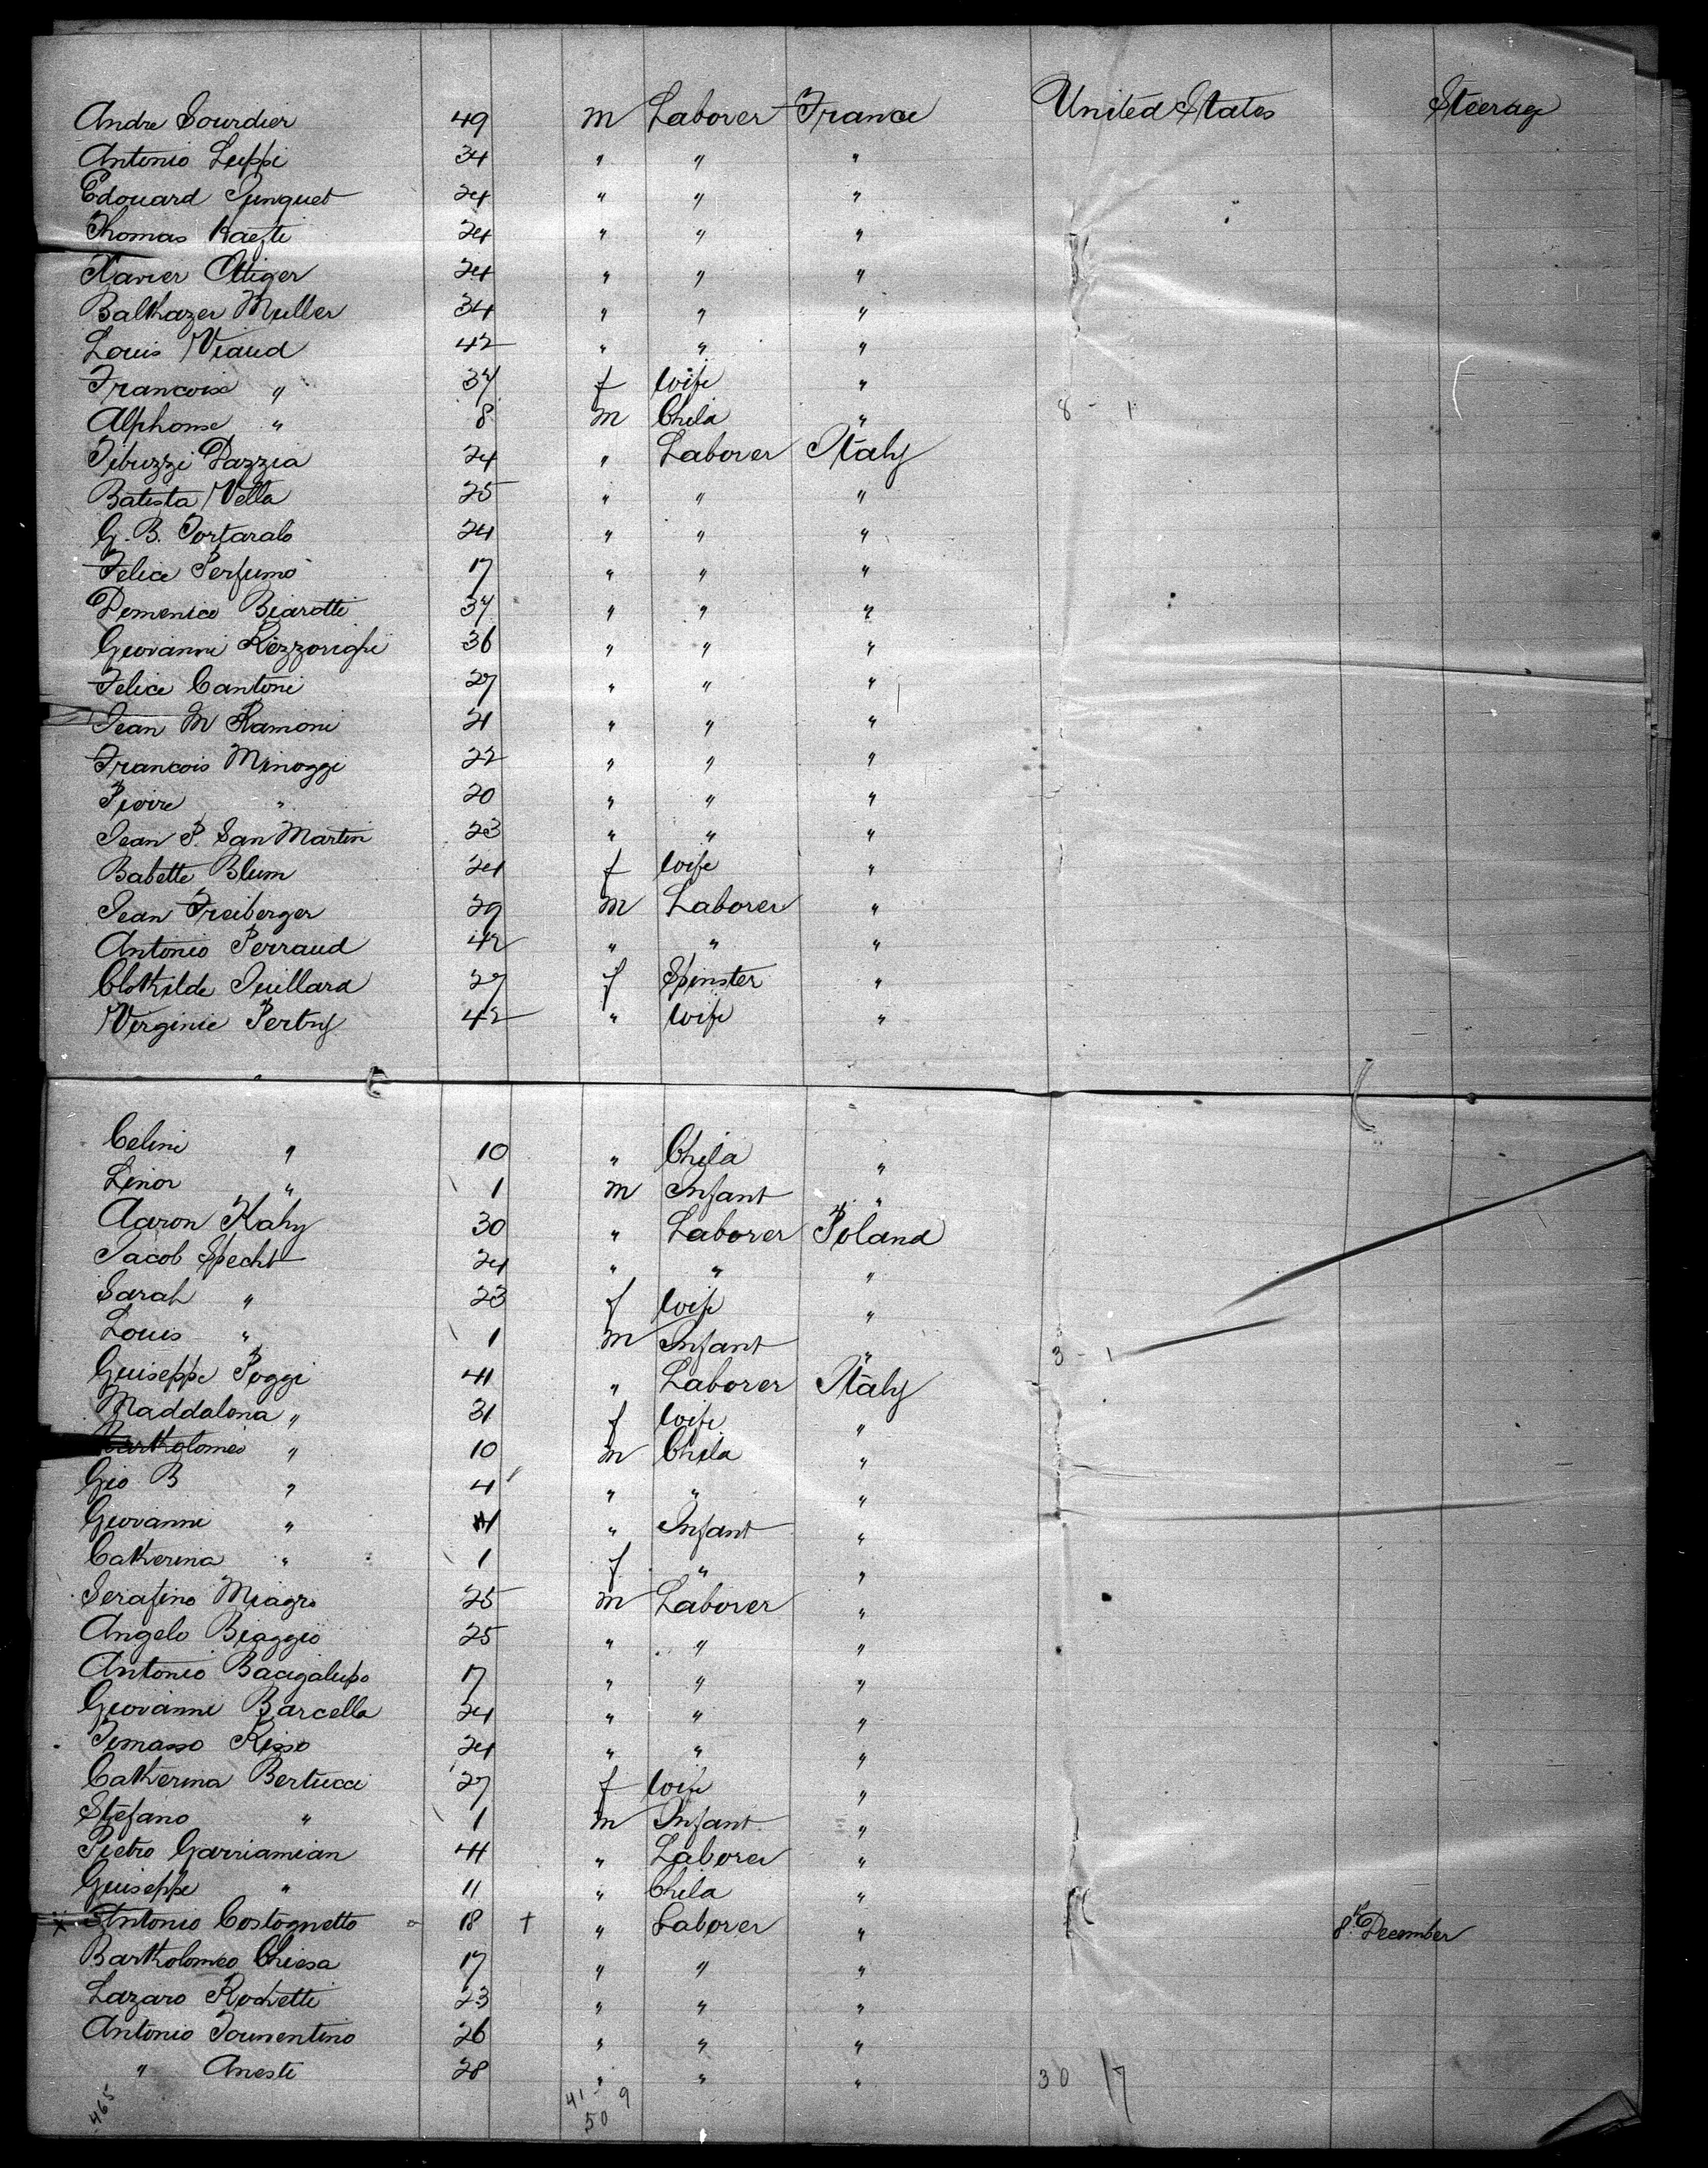 Andre Sourdier 49 m Laborer France United States Steerage
Antonio Luppi 34 " " "
Edouard Junquet 24 " " "
Thomas Kaefti 24 " " "
Xavier Ottiger 24 " " "
Balthazer Muller 34 " " "
Louis Viaud 42 " " "
Francoise " 37 f Wife "
Alphonse " 8 m Child " 8 - 1
Tibuzzi Dazzia 24 " Laborer Italy
Batista Vella 25 " " "
G. B. Torfaralo 24 " " "
Felice Perfumo 17 " " "
Domenico Biarotti 37 " " "
Giovanni Rezzorighi 36 " " "
Felice Cantoni 27 " " "
Jean M Ramoni 21 " " "
Francois Minoggi 22 " " "
Pierre " 20 " " "
Jean P. San Martin 23 " " "
Babette Blum 24 f Wife "
Jean Freiberger 29 m Laborer "
Antonio Perraud 42 " " "
Clothilde Juillard 27 f Spinster "
Virginie Pertuy 42 " Wife "
Celini " 10 " Child "
Linor " 1 m Infant "
Aaron Kahy 30 " Laborer Poland
Jacob Specht 24 " " "
Sarah " 23 f Wife "
Louis " 1 m Infant " 3 - 1
Guiseppe Poggi 41 " Laborer Italy
Maddalena " 31 f Wife "
Bartholomeo " 10 m Child "
Gio B " 4 " " "
Giovanni " " Infant "
Catherina " 1 f " "
Serafino Miagro 25 m Laborer "
Angelo Biaggio 25 " " "
Antonio Bacigalupo 17 " " "
Giovanni Barcella 24 " " "
Tomasso Risso 24 " " "
Catherina Bertucci 27 f Wife "
Stefano " 1 m Infant "
Pietro Garriamian 41 " Laborer "
Guiseppe " 11 " Child "
x Antonio Costognetto 18 + " Laborer " 8th December
Bartholomeo Chiesa 17 " " "
Lazaro Rochetti 23 " " "
Antonio Tourentino 26 " " "
" Anesti 28 " " " 30 17
465 41 - 9
50